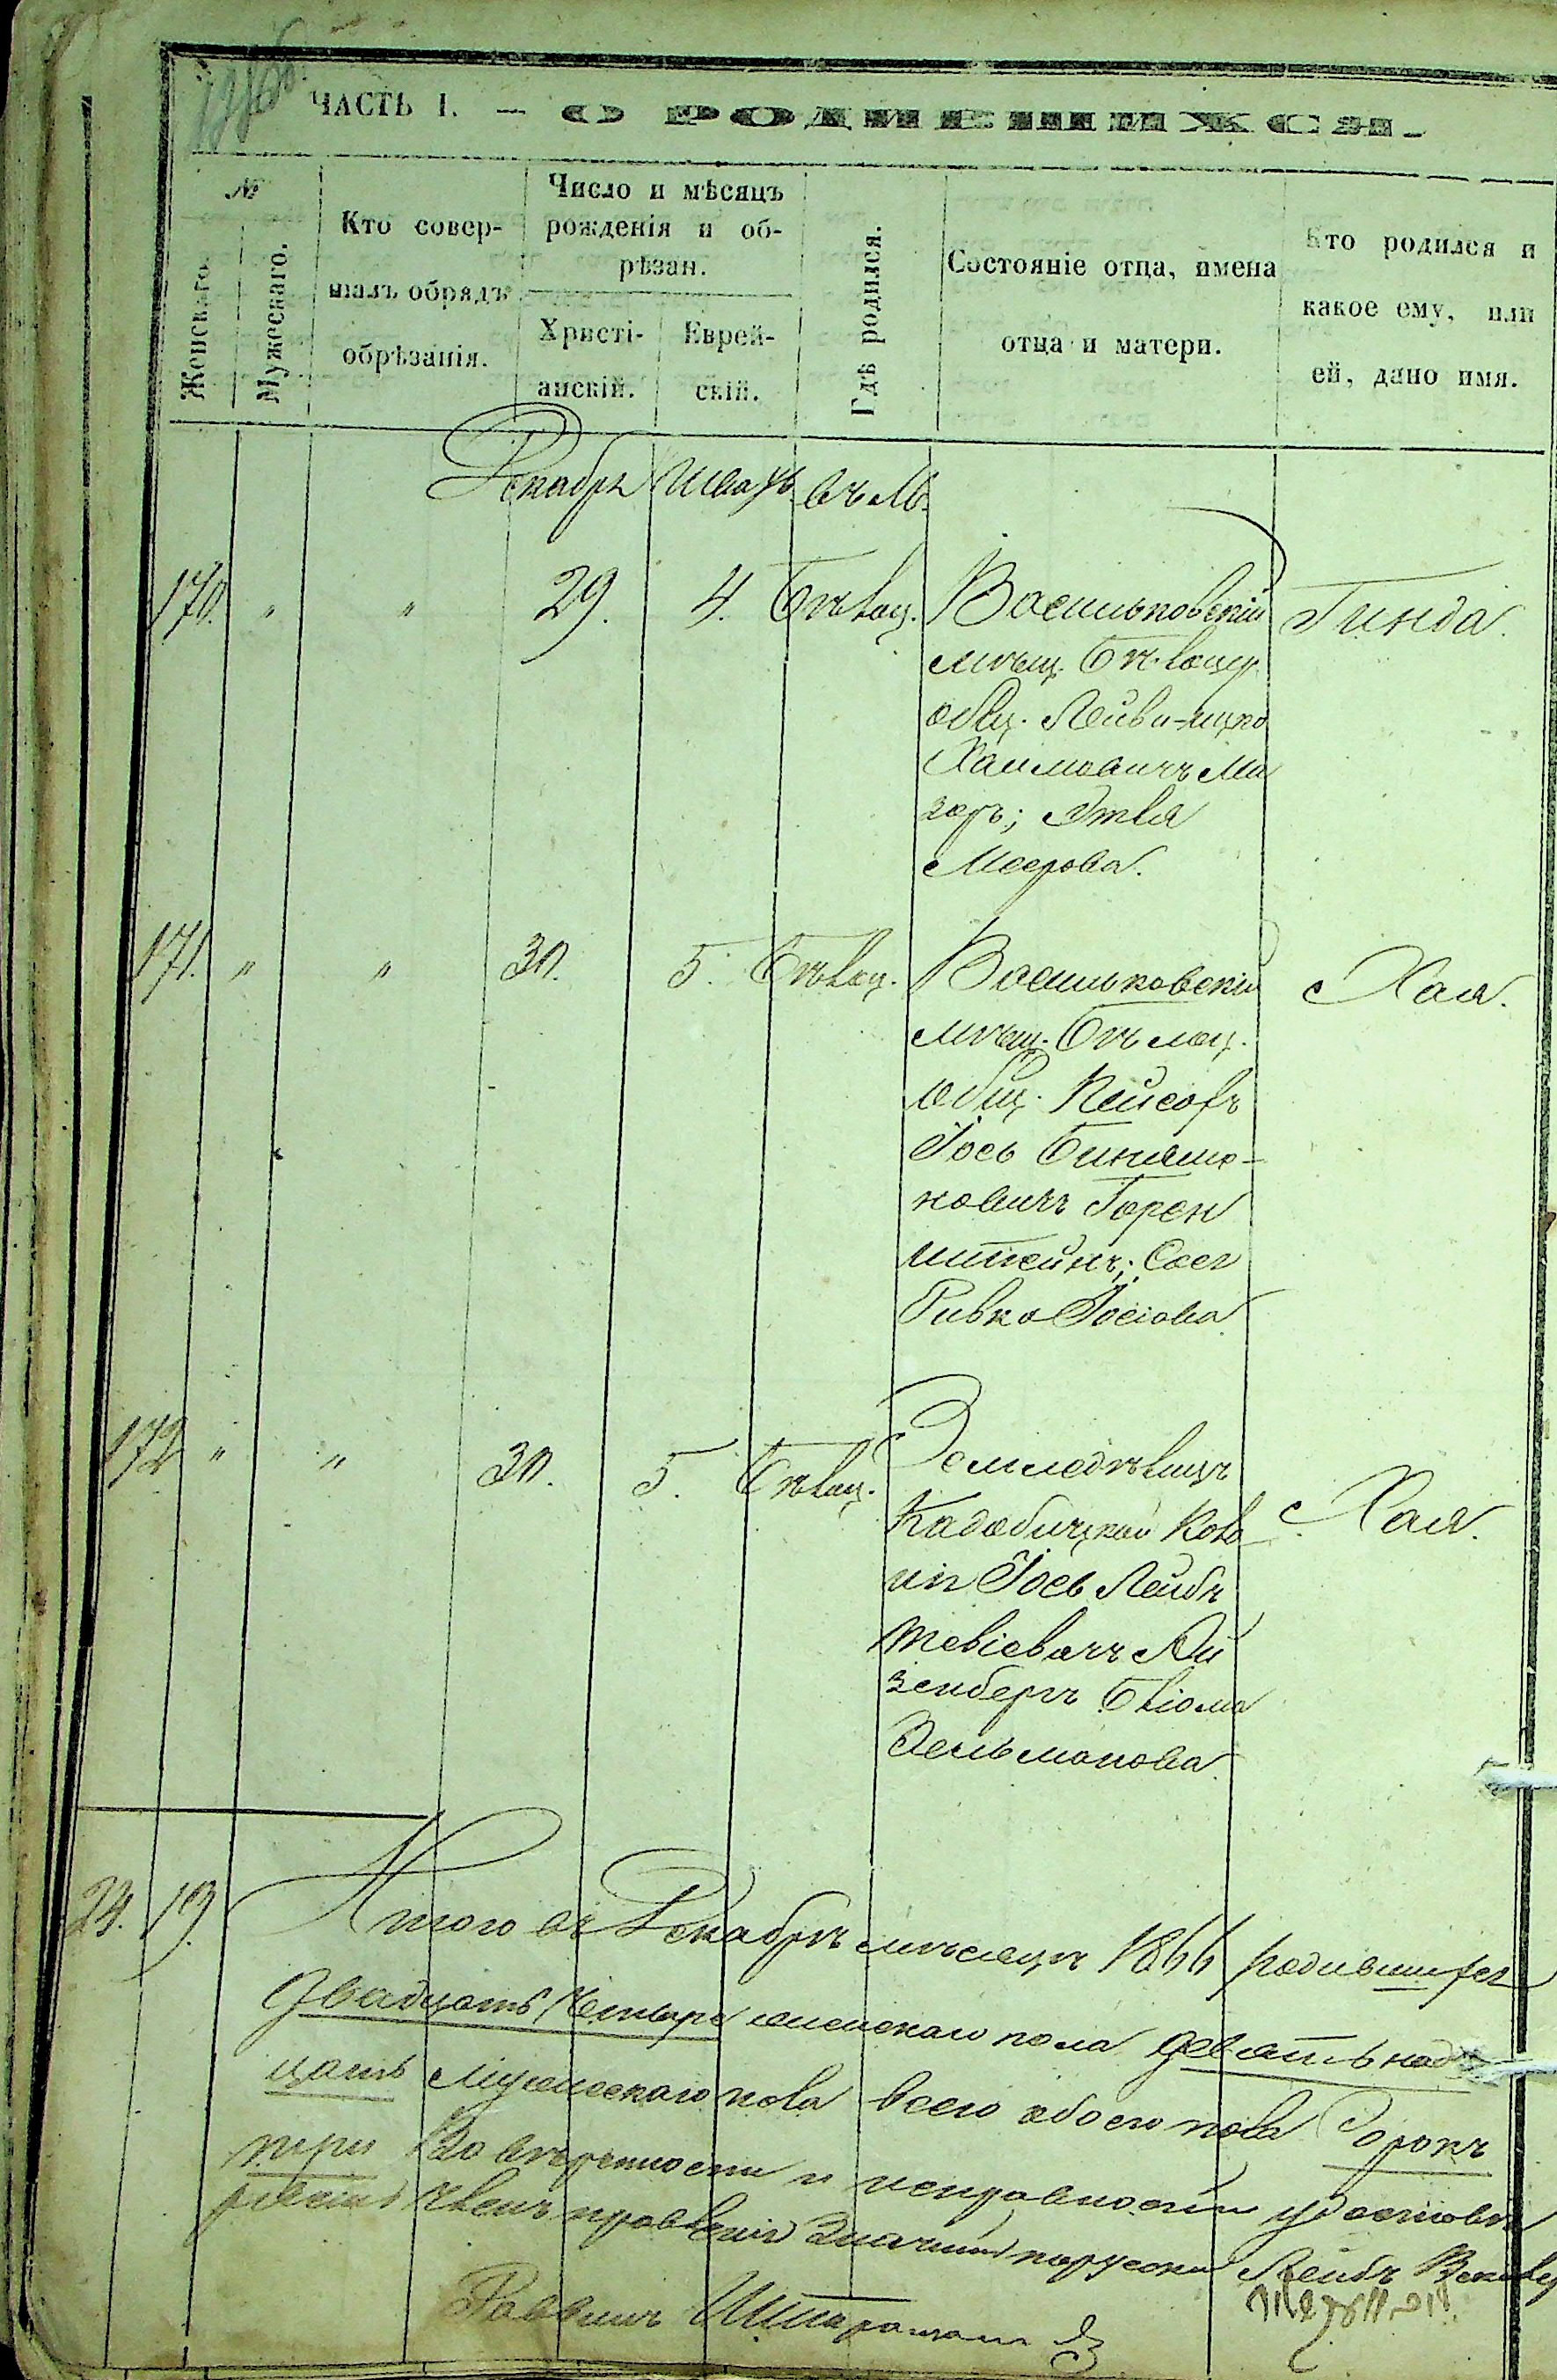 ЧАСТЬ I. — О РОДИВШИХСЯ.
№
Женскаго.
Мужескаго.
Кто совер-
шалъ обрядъ
обрѣзанія.
Число и мѣсяцъ
рожденія и об-
рѣзан.
Христі-
анскій.
Еврей-
скій.
Гдѣ родился.
Состояніе отца, имена
отца и матери.
Кто родился и
какое ему, или
ей, дано имя.
Декабрь Шватъ
170. " " 29. 4. Бѣлоц. Васильковскій Гинда.
мѣщ. Бѣлоцер
общ. Лейви-Ицко
Хаимовичъ Ма
зоръ; Этля
Меерова.
171. " " 30. 5. Бѣлоц. Васильковскій Хая.
мѣщ. Бѣлоц.
общ. Пейсохъ
Іось Биниамо-
новичъ Горен
штейнъ; Сося
Ривка Іосіова
172 " " 30. 5. Бѣлоц. Землѣдѣлецъ
Кадобицкой Коло Хая.
ніи Іось Лейбъ
Тевіевичъ Ай
зенбергъ Блюма
Зельманова
24. 19. Итого въ Декабрѣ мѣсяцѣ 1866 родившихся
двадцать четыре женскаго пола девятьнад
цать мужескаго пола всего обоего пола Сорокъ
три Во вѣрности и исправности удостовѣ
Членъ правленія Лейбъ
Раввинъ